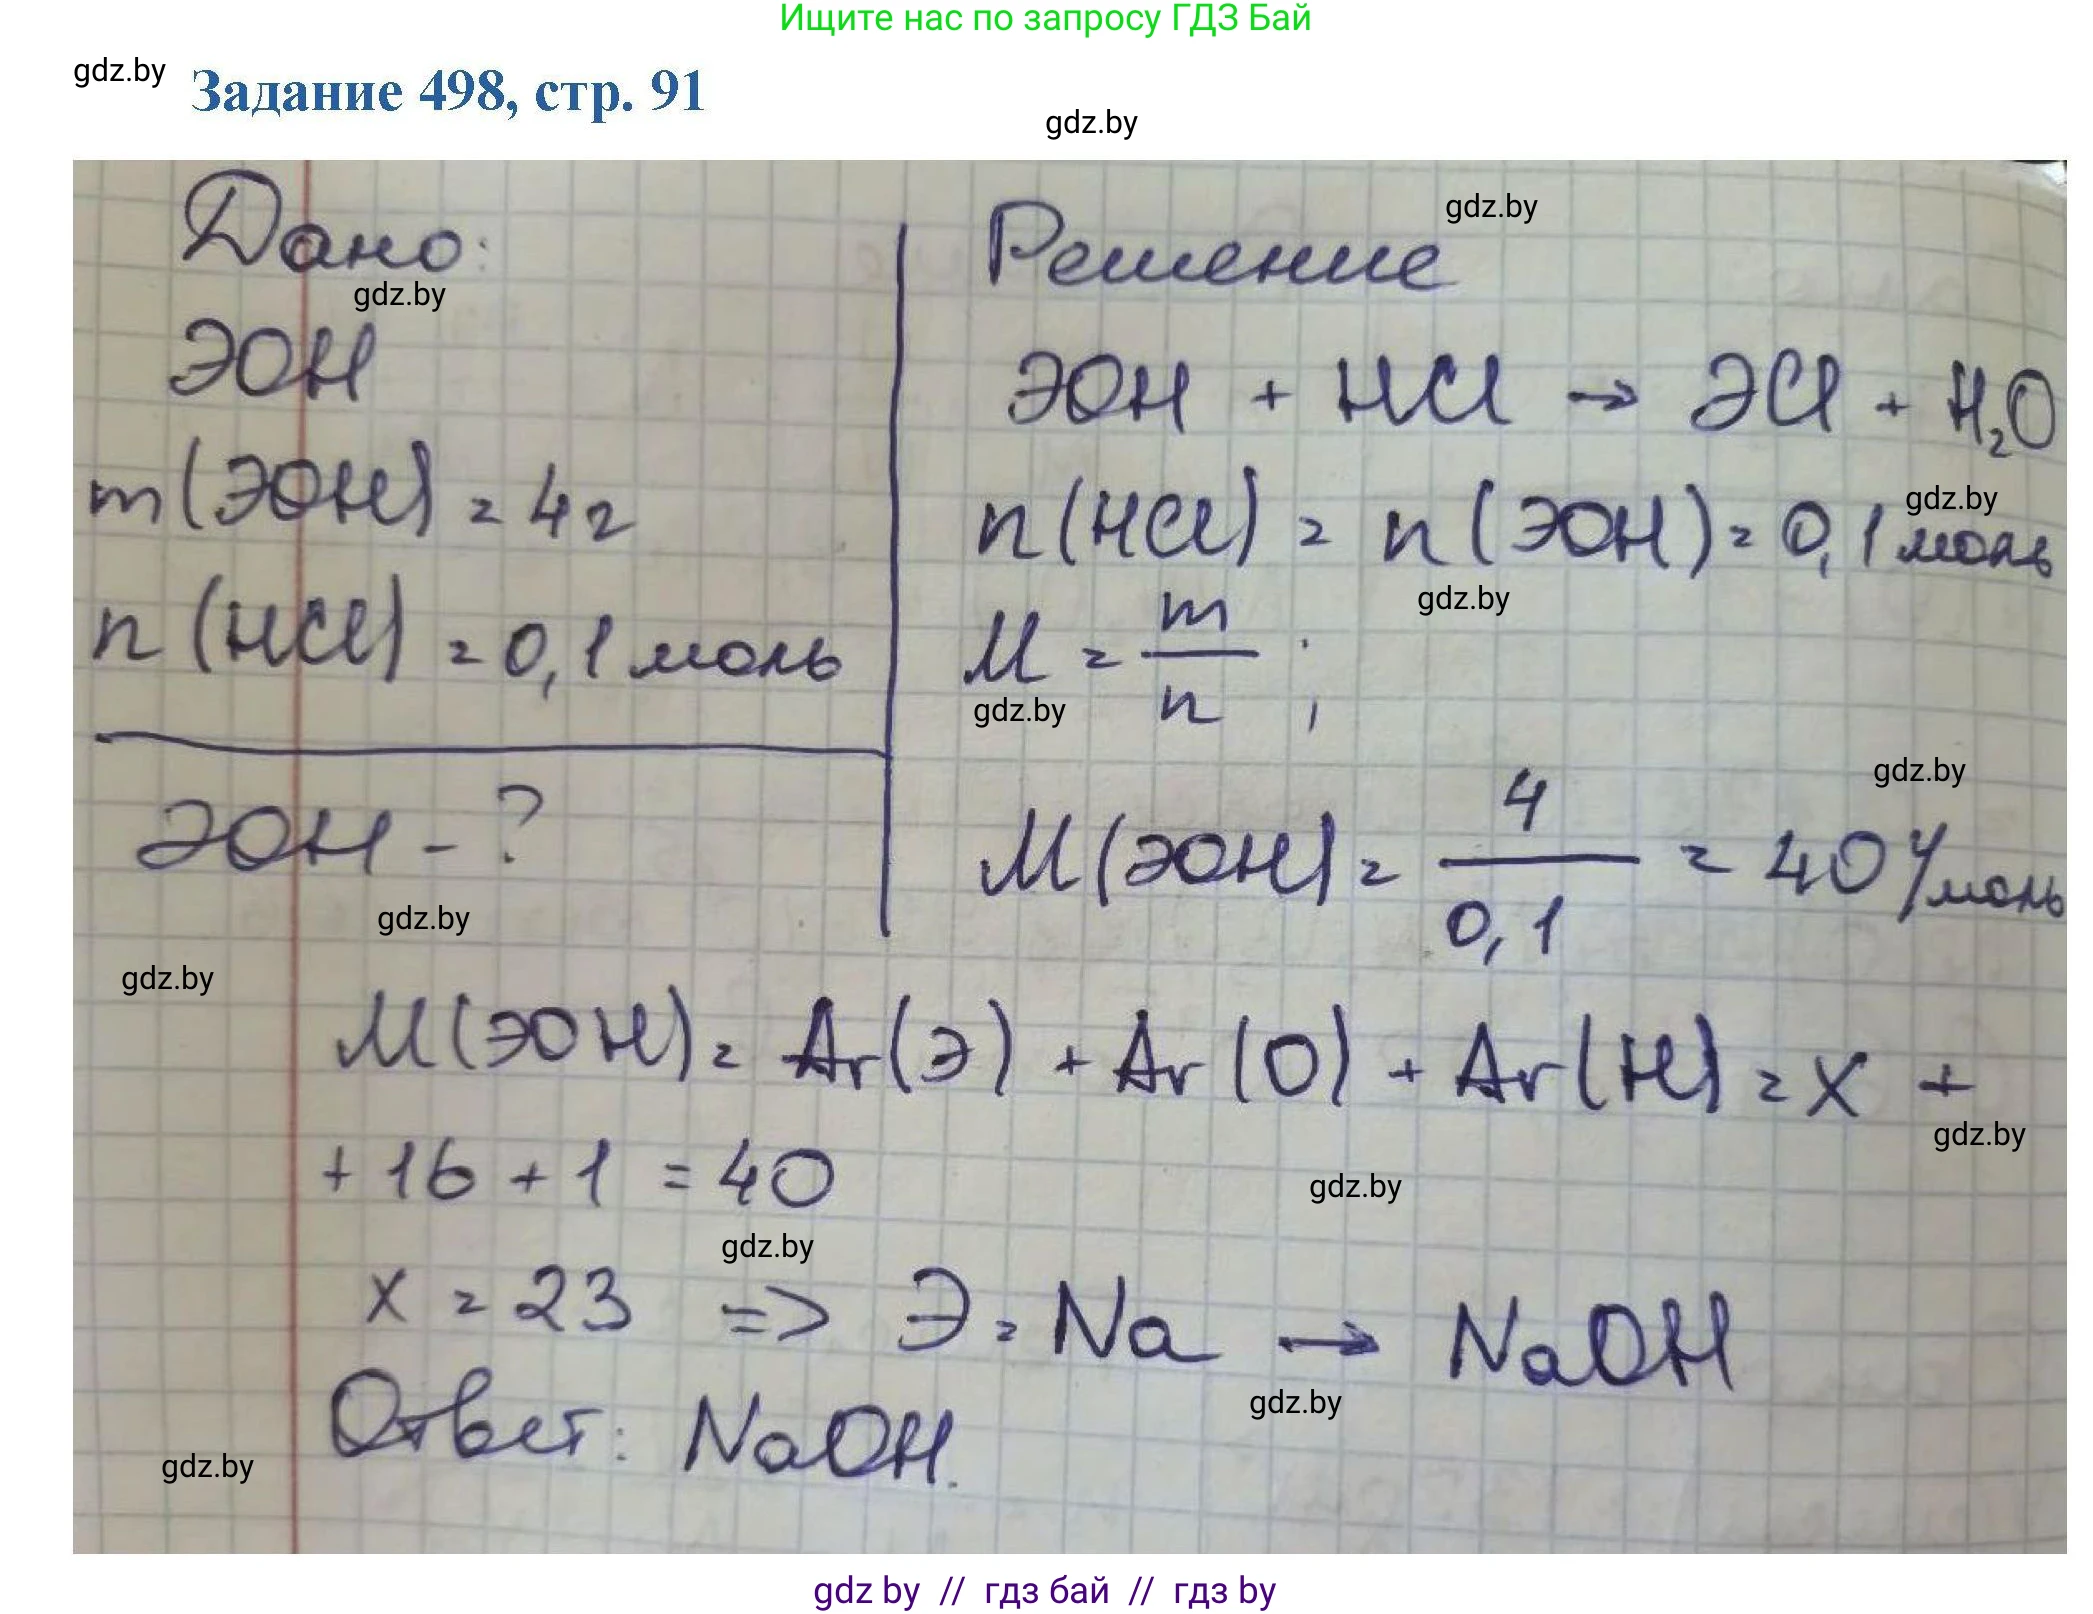 Ищите нас по запросу ГДЗ Бай
gdz.by
Задание 498, стр. 91
gdz.by
Дано:
gdz.by
ЭОН
m(ЭОН) = 4г
n(HCl) = 0,1 моль
ЭОН - ?
gdz.by
gdz.by
Решение
gdz.by
ЭОН + HCl → ЭCl + H₂O
gdz.by
n(HCl) = n(ЭОН) = 0,1 моль
gdz.by
M = m/n ;
gdz.by
gdz.by
M(ЭОН) = 4/0,1 = 40 г/моль
M(ЭОН) = Ar(Э) + Ar(O) + Ar(H) = x +
gdz.by
+ 16 + 1 = 40
gdz.by
gdz.by
x = 23 => Э = Na → NaOH
gdz.by
Ответ: NaOH.
gdz.by
gdz by // гдз бай // гдз by